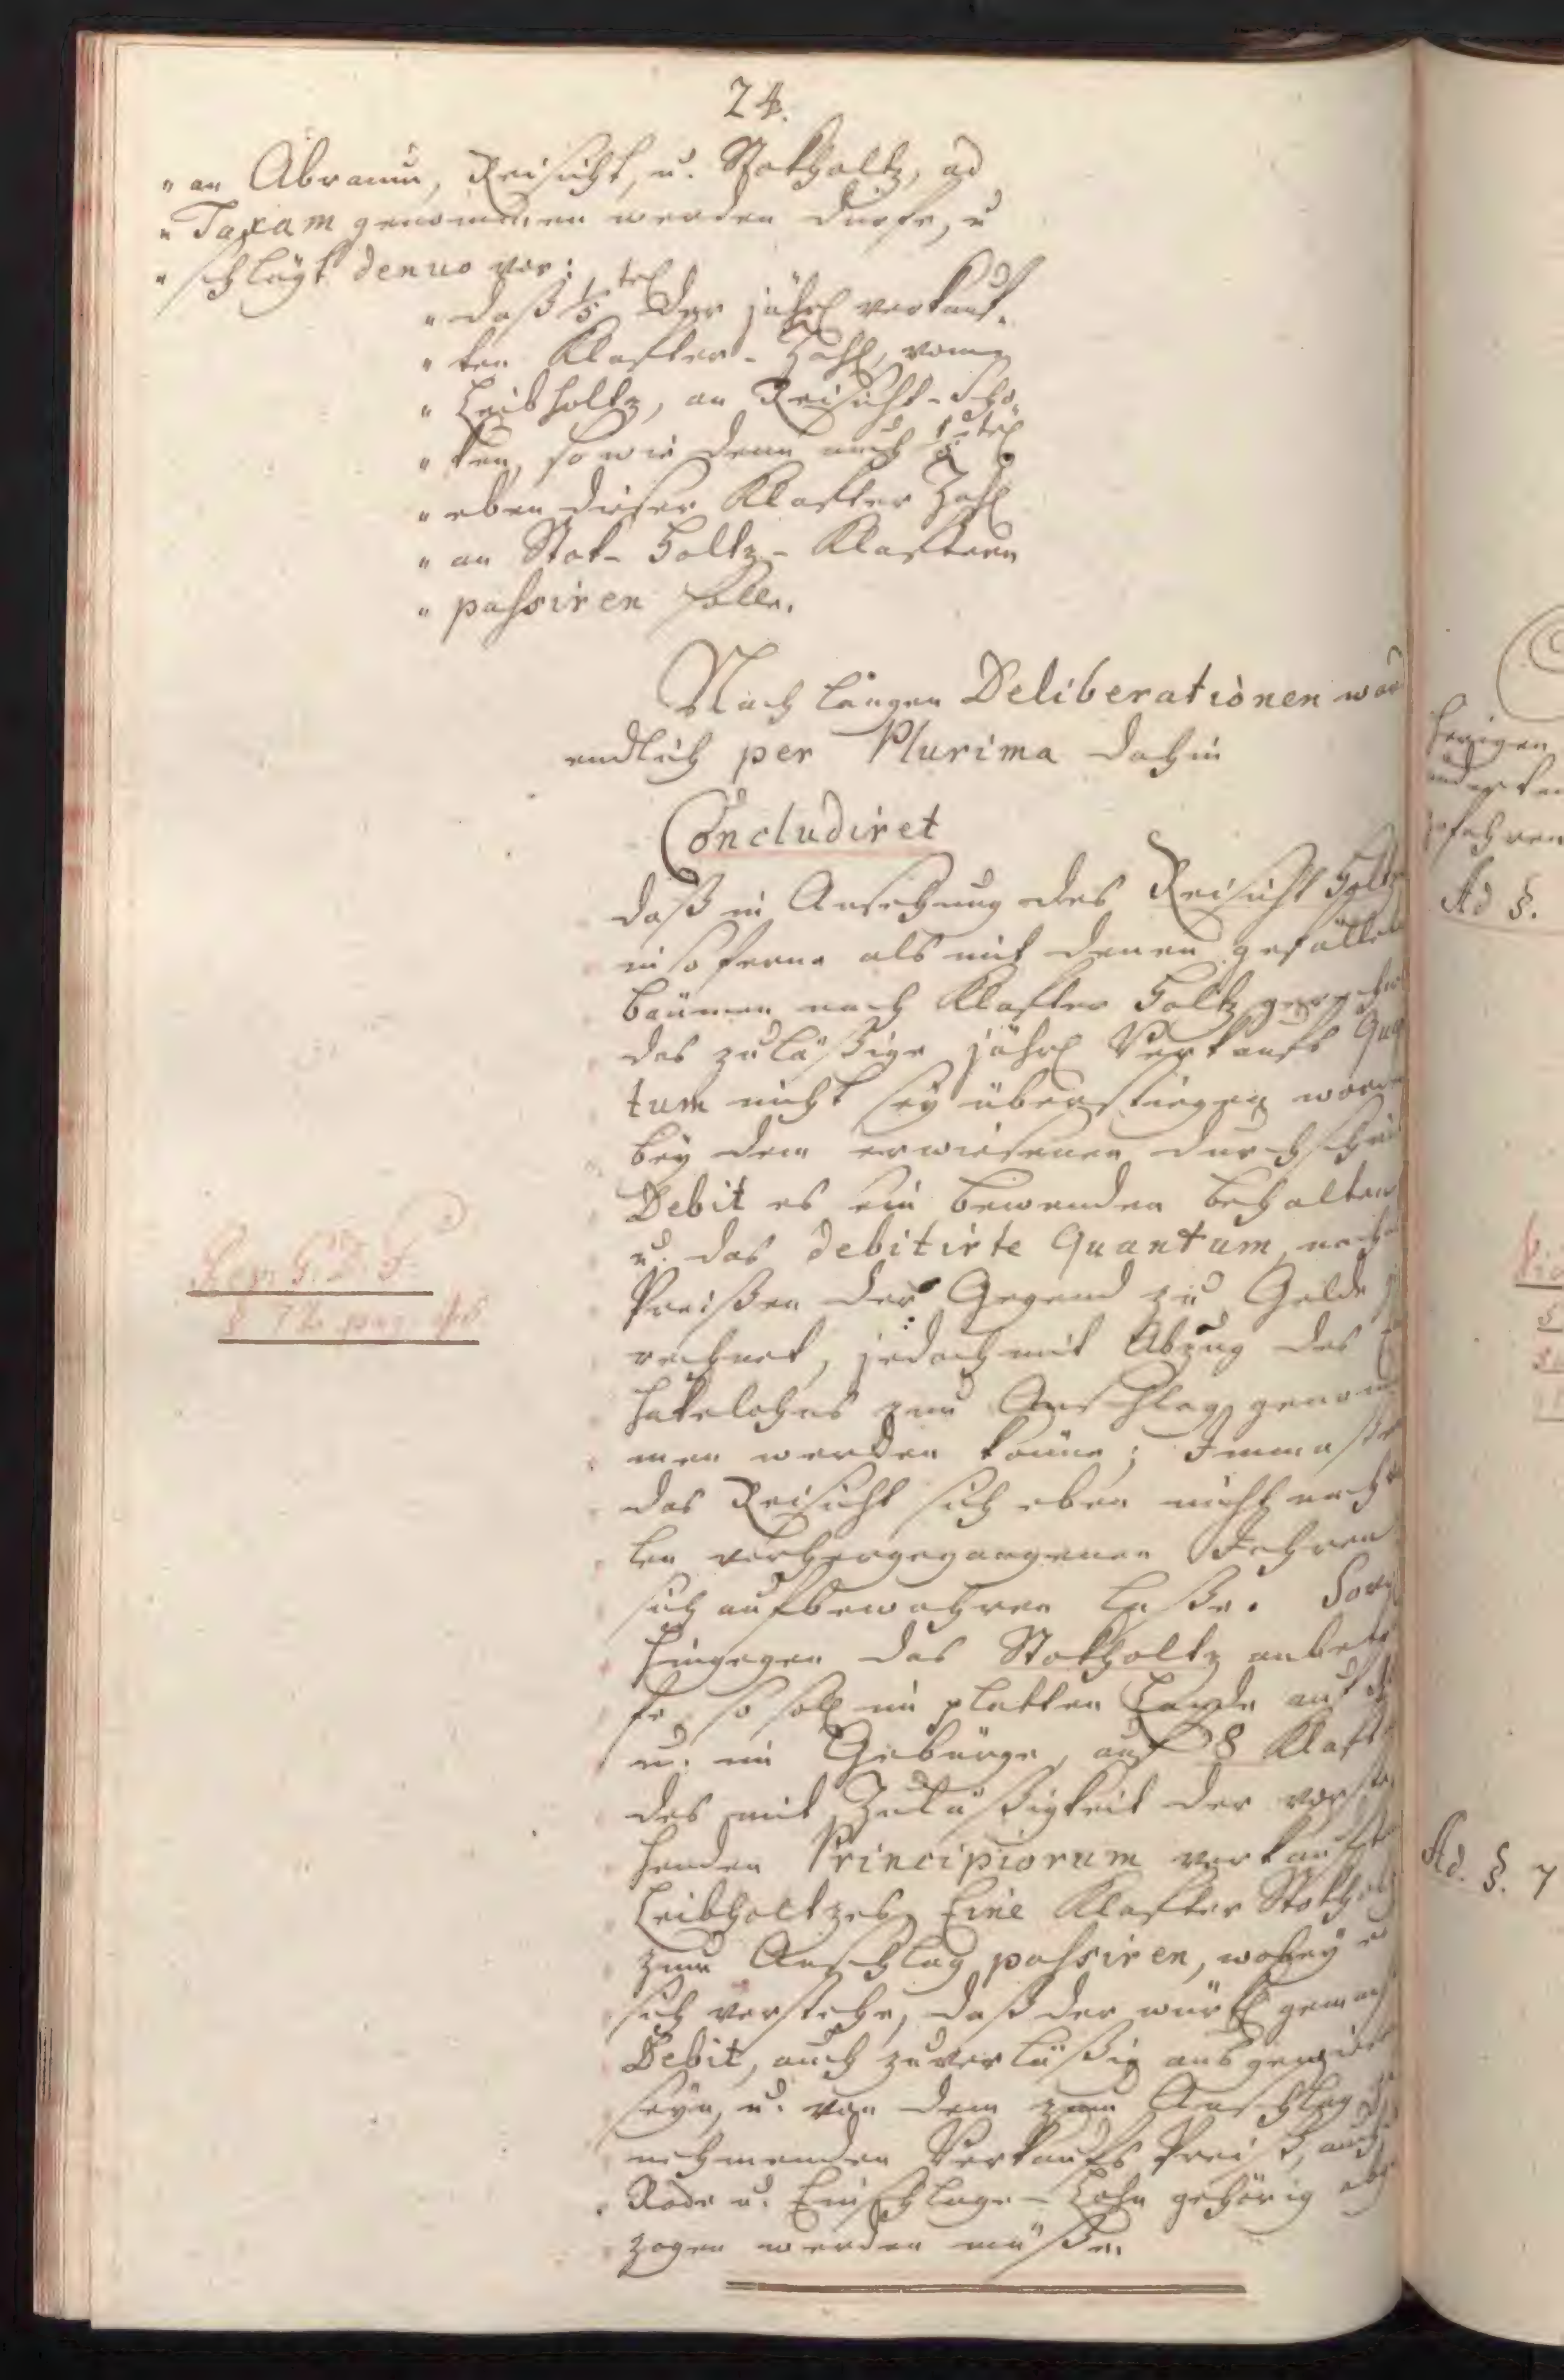 24.
" an Abraum, Reisicht, u. Stokholtz, ad
" Taxam genommen werden durfe, u
" schlägt denuo vor:
" daß 1/5 tel der jährl verkauf-
" ten Klafter-Zahl, vom
" Leibholtz, an Reisicht-Scho-
" ken, so wie denn auch 1/8 tel
" eben dieser Klafter Zahl
" an Stok-Holtz-Klaftern
" passiren solle.
Nach langen Deliberationen ward
endlich per Plurima dahin
Concludiret
daß in Ansehung des Reisicht Holtzes
in so ferne als mit denen gefällten
bäumen nach Klafter Holtz gerechnet
das zuläßige jährl Verkaufs Quan
tum nicht sey überstiegen worden
bey dem erwiesenen durchschnitts
Debit es sein bewenden behalten
u. das debitirte Quantum, nach
Preißen der Gegend zu Gelde ge
rechnet, jedoch mit Abzug des
hakelohns zum Anschlag genom
men werden könne; Immaßen
das Reisicht sich eben nicht nach
len vorhergegangenen Jahren
sich aufbewahren laße. Soviel
hingegen das Stokholtz anbetref
fe, so soll im platten Lande auf
u. im Gebürge, auf 8 Klafter
des mit Zuläßigkeit der vorste
henden Principiorum verkauften
Leibholtzes Eine Klafter Stokholtz
zum Anschlag passiren, wobey es
sich verstehe, daß der würkl gemachte
Debit, auch zuverläßig ausgewiesen
seyn, u. von dem zum Anschlag zu
nehmenden Verkaufs Preiß, auch
Rode u. Einschlage-Lohn gehörig abge
zogen werden müße.
Rev. G. D. J.
§ 72 pag.
herigen
zufahren
Ad §.
Ad. §. 7